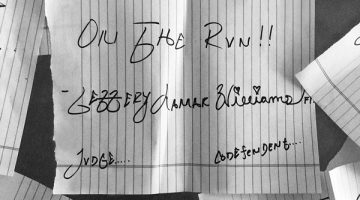 ON THE RUN!!
JEFFERY LAMAR Williams Jr.
JUDGE....
CODEFENDENT....